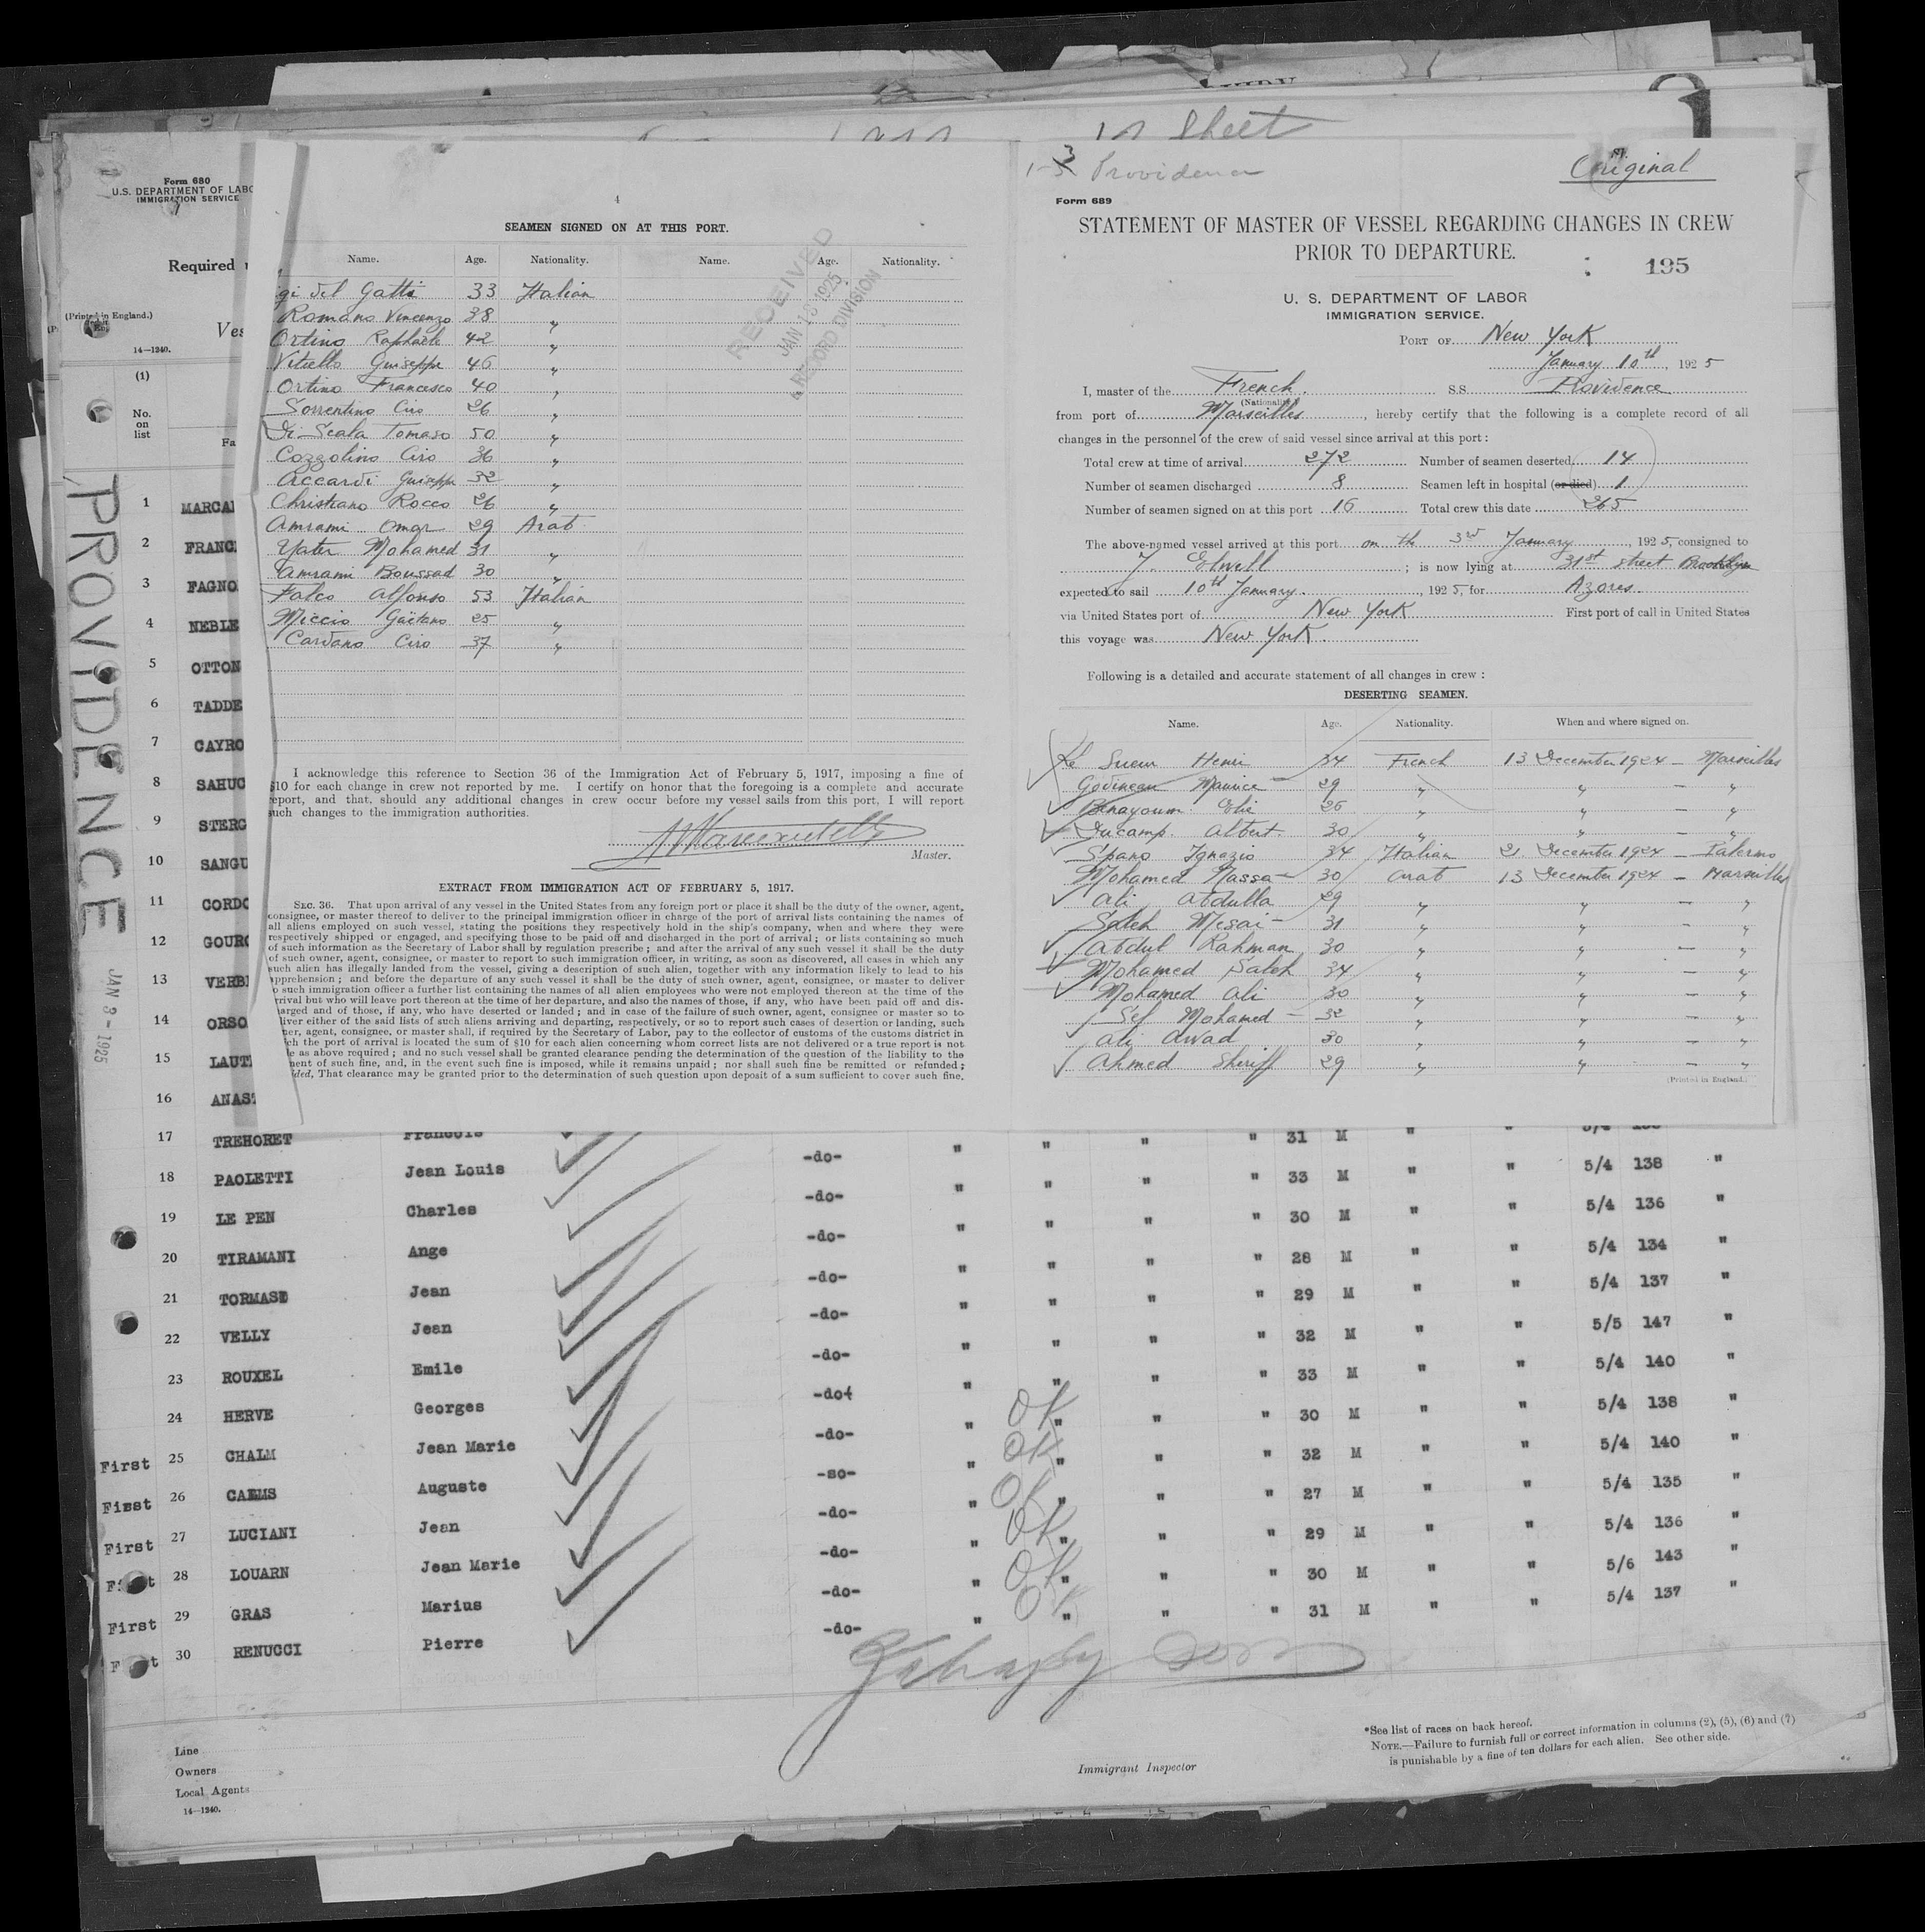 1st Sheet
Form 680
U.S. DEPARTMENT OF LABO
IMMIGRATION SERVICE
Required
(Printed in England.)
Ves
14—1240.
(1)
No.
on
list
Fa
PROVIDENCE
JAN 3 - 1925
1 MARCA
2 FRANC
3 FAGNO
4 NEBLE
5 OTTON
6 TADDE
7 CAYRO
8 SAHUC
9 STERG
10 SANGU
11 CORDO
12 GOURG
13 VERB
14 ORSO
15 LAUT
16 ANAS
4
SEAMEN SIGNED ON AT THIS PORT.
Name. Age. Nationality. Name. Age. Nationality.
RECEIVED
JAN 13 1925
RECORD DIVISION
igi del Gatti 33 Italian
Romano Vincenzo 38 "
Ortino Raphaele 42 "
Vitiello Guiseppe 46 "
Ortino Francesco 40 "
Sorrentino Ciro 26 "
Di Scala Tomaso 50 "
Cozzolino Ciro 36 "
Accardi Guiseppe 32 "
Christiano Rocco 26 "
Amrami Omar 29 Arab
Yater Mohamed 31 "
Amrami Boussad 30 "
Falco Alfonso 53 Italian
Miccio Gaëtano 25 "
Cardano Ciro 37 "
I acknowledge this reference to Section 36 of the Immigration Act of February 5, 1917, imposing a fine of
$10 for each change in crew not reported by me. I certify on honor that the foregoing is a complete and accurate
report, and that, should any additional changes in crew occur before my vessel sails from this port, I will report
such changes to the immigration authorities.
Master.
EXTRACT FROM IMMIGRATION ACT OF FEBRUARY 5, 1917.
SEC. 36. That upon arrival of any vessel in the United States from any foreign port or place it shall be the duty of the owner, agent,
consignee, or master thereof to deliver to the principal immigration officer in charge of the port of arrival lists containing the names of
all aliens employed on such vessel, stating the positions they respectively hold in the ship's company, when and where they were
respectively shipped or engaged, and specifying those to be paid off and discharged in the port of arrival; or lists containing so much
of such information as the Secretary of Labor shall by regulation prescribe; and after the arrival of any such vessel it shall be the duty
of such owner, agent, consignee, or master to report to such immigration officer, in writing, as soon as discovered, all cases in which any
such alien has illegally landed from the vessel, giving a description of such alien, together with any information likely to lead to his
apprehension; and before the departure of any such vessel it shall be the duty of such owner, agent, consignee, or master to deliver
to such immigration officer a further list containing the names of all alien employees who were not employed thereon at the time of the
rrival but who will leave port thereon at the time of her departure, and also the names of those, if any, who have been paid off and dis-
arged and of those, if any, who have deserted or landed; and in case of the failure of such owner, agent, consignee or master so to
liver either of the said lists of such aliens arriving and departing, respectively, or so to report such cases of desertion or landing, such
ner, agent, consignee, or master shall, if required by the Secretary of Labor, pay to the collector of customs of the customs district in
ch the port of arrival is located the sum of $10 for each alien concerning whom correct lists are not delivered or a true report is not
e as above required; and no such vessel shall be granted clearance pending the determination of the question of the liability to the
ment of such fine, and, in the event such fine is imposed, while it remains unpaid; nor shall such fine be remitted or refunded;
ded, That clearance may be granted prior to the determination of such question upon deposit of a sum sufficient to cover such fine.
1-3 Providence
Original
Form 689
STATEMENT OF MASTER OF VESSEL REGARDING CHANGES IN CREW
PRIOR TO DEPARTURE.
195
U. S. DEPARTMENT OF LABOR
IMMIGRATION SERVICE.
PORT OF New York
January 10th, 1925
I, master of the French S.S. Providence
(Nationality)
from port of Marseilles, hereby certify that the following is a complete record of all
changes in the personnel of the crew of said vessel since arrival at this port:
Total crew at time of arrival 272 Number of seamen deserted 14
Number of seamen discharged 8 Seamen left in hospital (or died) 1
Number of seamen signed on at this port 16 Total crew this date 265
The above-named vessel arrived at this port on the 3rd January, 1925, consigned to
J. Elwell; is now lying at 31st street Brooklyn
expected to sail 10th January, 1925, for Azores.
via United States port of New York First port of call in United States
this voyage was New York.
Following is a detailed and accurate statement of all changes in crew:
DESERTING SEAMEN.
Name. Age. Nationality. When and where signed on.
Le Suem Henri 34 French 13 December 1924 — Marseilles
Godineau Maurice — 29 " " — "
Benayoum Elie 26 " " — "
Ducamp Albert 30 " " — "
Spano Ignazio 34 Italian 21 December 1924 — Palermo
Mohamed Nassa — 30 Arab 13 December 1924 — Marseilles
Ali Abdulla 29 " " — "
Saleh Mesai — 31 " " — "
Abdul Rahman 30 " " — "
Mohamed Saleh 34 " " — "
Mohamed Ali 30 " " — "
Sef Mohamed — 32 " " — "
Ali Awad 30 " " — "
Ahmed Sheriff 29 " " — "
(Printed in England.)
17 TREHORET Francois " " " " 31 M " "
18 PAOLETTI Jean Louis -do- " " " " 33 M " " 5/4 138 "
19 LE PEN Charles -do- " " " " 30 M " " 5/4 136 "
20 TIRAMANI Ange -do- " " " " 28 M " " 5/4 134 "
21 TORMASD Jean -do- " " " " 29 M " " 5/4 137 "
22 VELLY Jean -do- " " " " 32 M " " 5/5 147 "
23 ROUXEL Emile -do- " " " " 33 M " " 5/4 140 "
24 HERVE Georges -do- " OK " " " 30 M " " 5/4 138 "
First 25 CHALM Jean Marie -do- " OK " " " 32 M " " 5/4 140 "
First 26 CAEMS Auguste -so- " OK " " " 27 M " " 5/4 135 "
First 27 LUCIANI Jean -do- " OK " " " 29 M " " 5/4 136 "
First 28 LOUARN Jean Marie -do- " OK " " " 30 M " " 5/6 143 "
First 29 GRAS Marius -do- " OK " " " 31 M " " 5/4 137 "
First 30 RENUCCI Pierre -do-
Line
Owners
Local Agents
14—1240.
Immigrant Inspector
*See list of races on back hereof.
NOTE.—Failure to furnish full or correct information in columns (2), (5), (6) and (7)
is punishable by a fine of ten dollars for each alien. See other side.